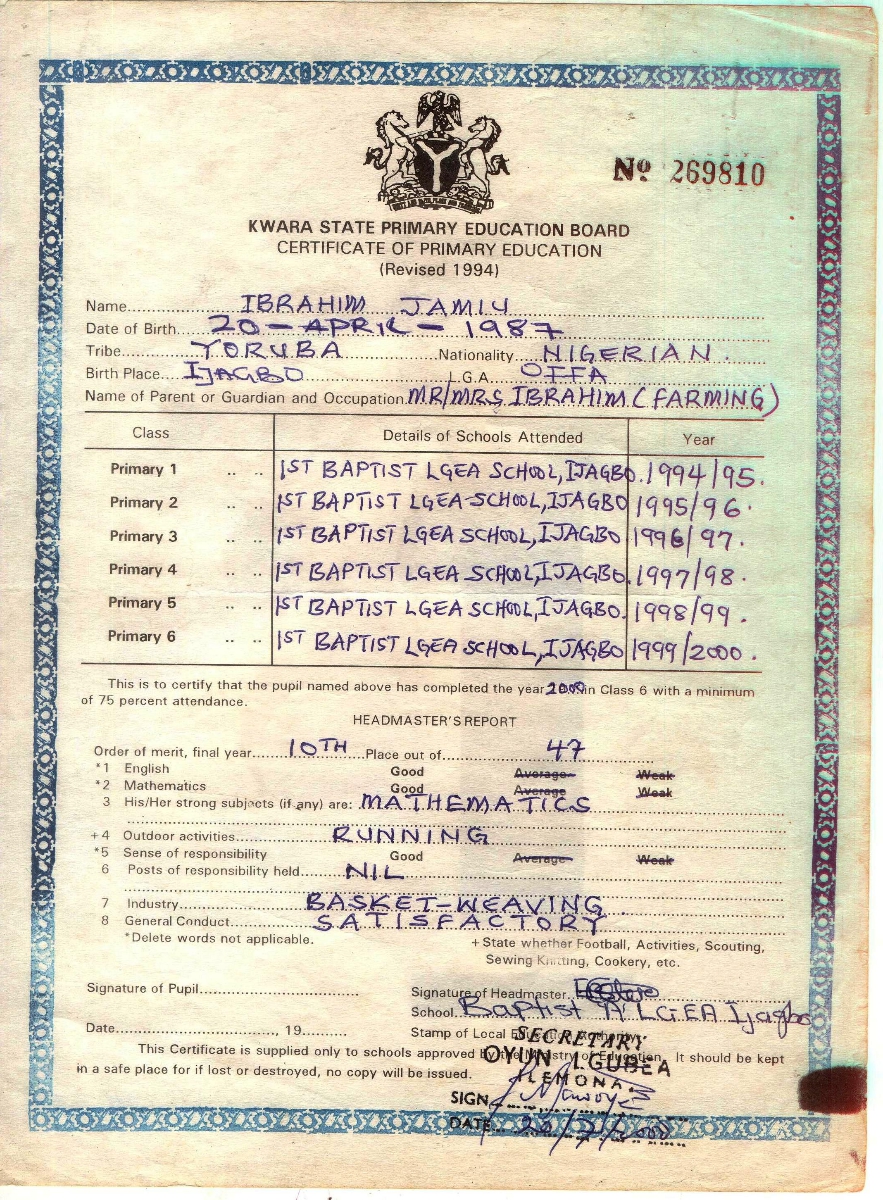 Nº 269810
KWARA STATE PRIMARY EDUCATION BOARD
CERTIFICATE OF PRIMARY EDUCATION
(Revised 1994)
Name IBRAHIM JAMIU
Date of Birth 20 - APRIL - 1987
Tribe YORUBA Nationality NIGERIAN.
Birth Place IJAGBO L.G.A. OFFA
Name of Parent or Guardian and Occupation MR/MRS IBRAHIM (FARMING)
Class Details of Schools Attended Year
Primary 1 .. .. 1ST BAPTIST LGEA SCHOOL, IJAGBO. 1994/95.
Primary 2 .. .. 1ST BAPTIST LGEA SCHOOL, IJAGBO 1995/96.
Primary 3 .. .. 1ST BAPTIST LGEA SCHOOL, IJAGBO 1996/97.
Primary 4 .. .. 1ST BAPTIST LGEA SCHOOL, IJAGBO. 1997/98.
Primary 5 .. .. 1ST BAPTIST LGEA SCHOOL, IJAGBO. 1998/99.
Primary 6 .. .. 1ST BAPTIST LGEA SCHOOL, IJAGBO 1999/2000.
This is to certify that the pupil named above has completed the year 2000 in Class 6 with a minimum
of 75 percent attendance.
HEADMASTER'S REPORT
Order of merit, final year 10TH Place out of 47
*1 English Good Average Weak
*2 Mathematics Good Average Weak
3 His/Her strong subjects (if any) are: MATHEMATICS
+4 Outdoor activities RUNNING
*5 Sense of responsibility Good Average Weak
6 Posts of responsibility held NIL
7 Industry BASKET-WEAVING
8 General Conduct SATISFACTORY
*Delete words not applicable. + State whether Football, Activities, Scouting,
Sewing Knitting, Cookery, etc.
Signature of Pupil Signature of Headmaster
School Baptist 'A' LGEA Ijagbo
Date , 19 Stamp of Local Education Authority
SECRETARY
This Certificate is supplied only to schools approved by the Ministry of Education. It should be kept
OYUN LGUBEA
in a safe place for if lost or destroyed, no copy will be issued.
ILEMONA
SIGN
DATE